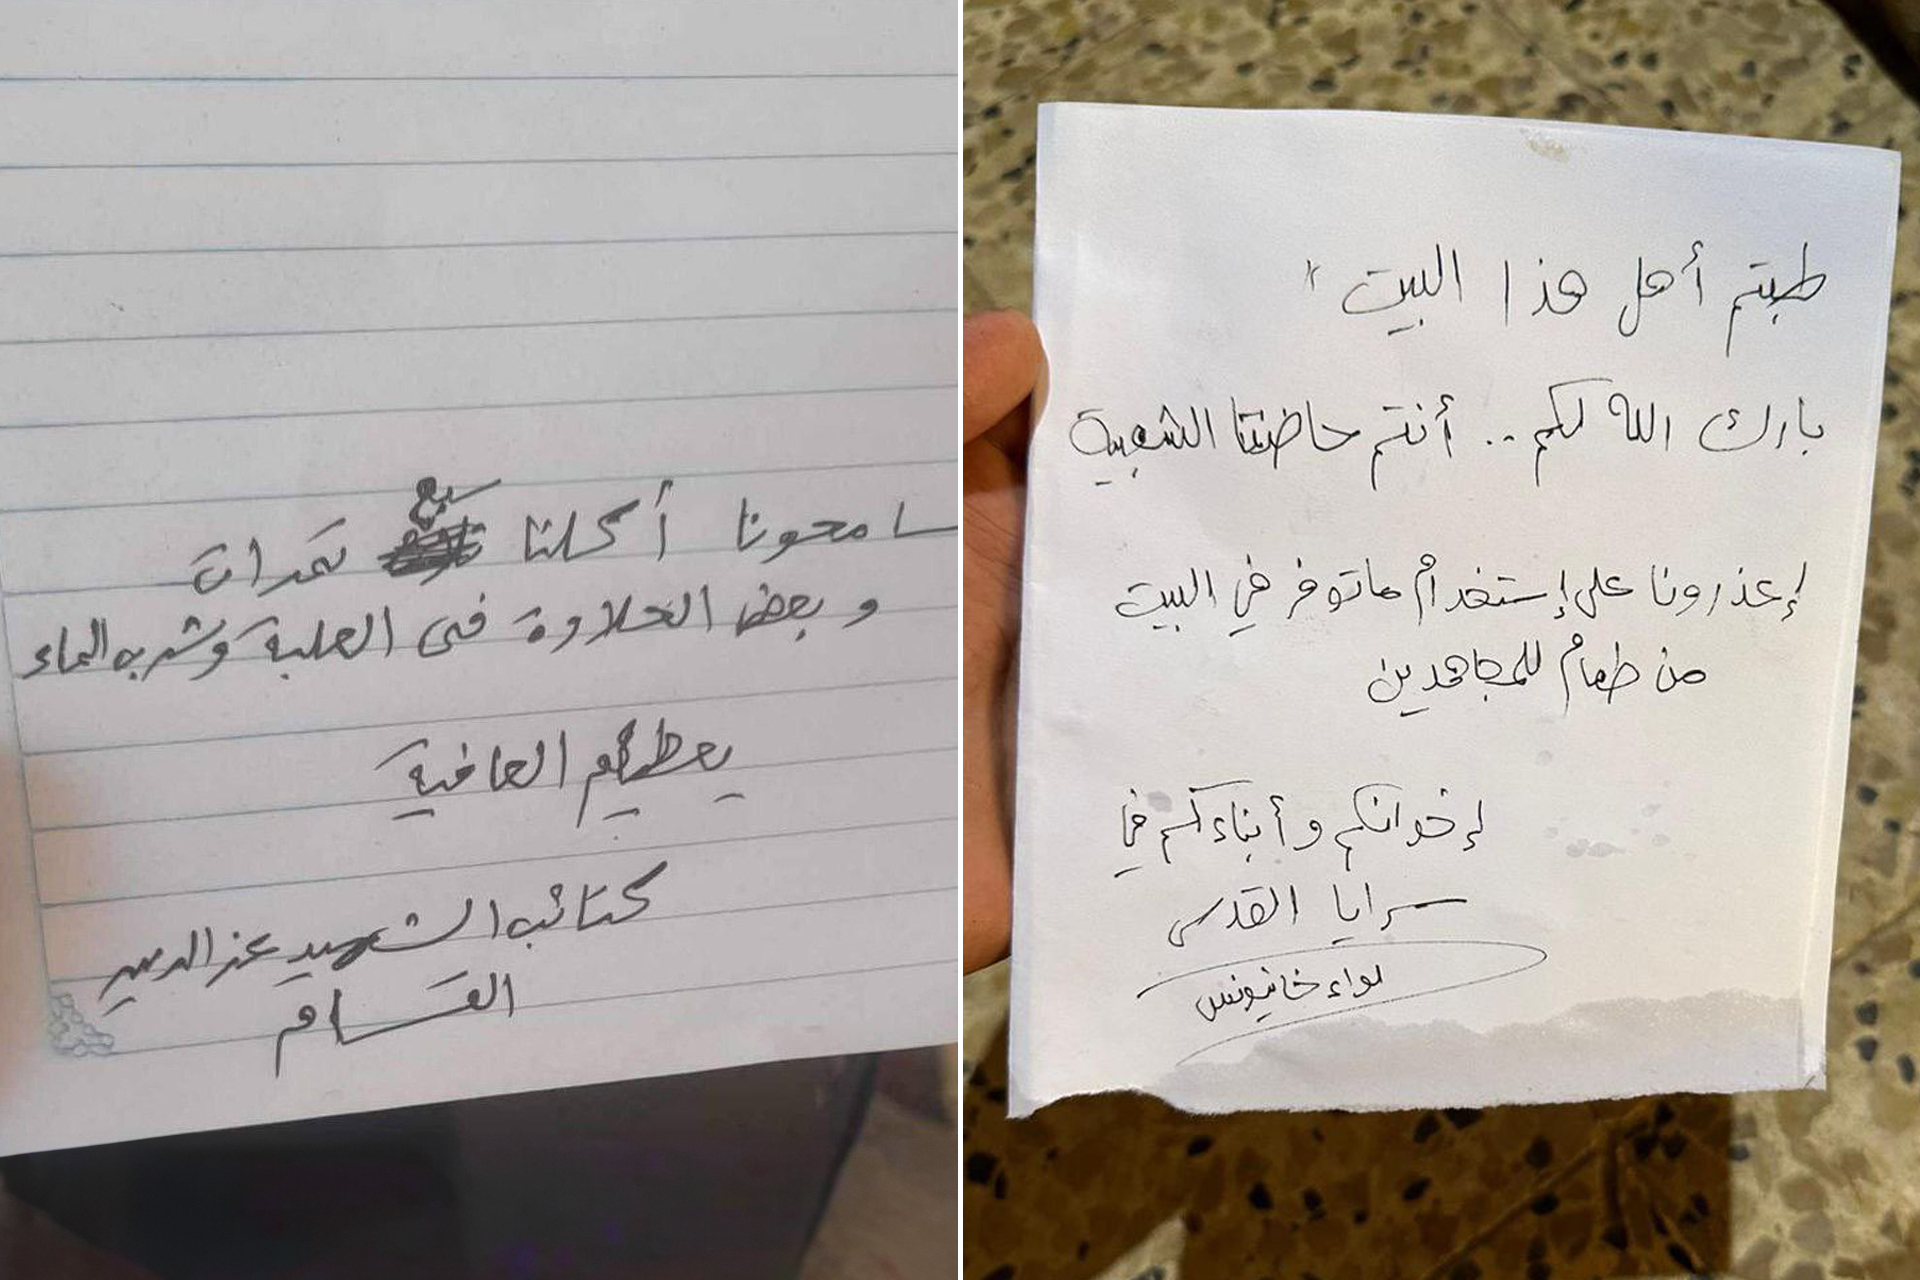 سامحونا أكلنا سبع تمرات
و بعض الحلاوة فى العلبة وشربه الماء
يعطيكم العافية
كتائب الشهيد عز الدين
القسام
طبتم أهل هذا البيت،،
بارك الله لكم .. أنتم حاضنتنا الشعبية
إعذرونا على إستخدام ماتوفر في البيت
من طعام للمجاهدين
إخوانكم وأبناءكم في
سرايا القدس
لواء خانيونس